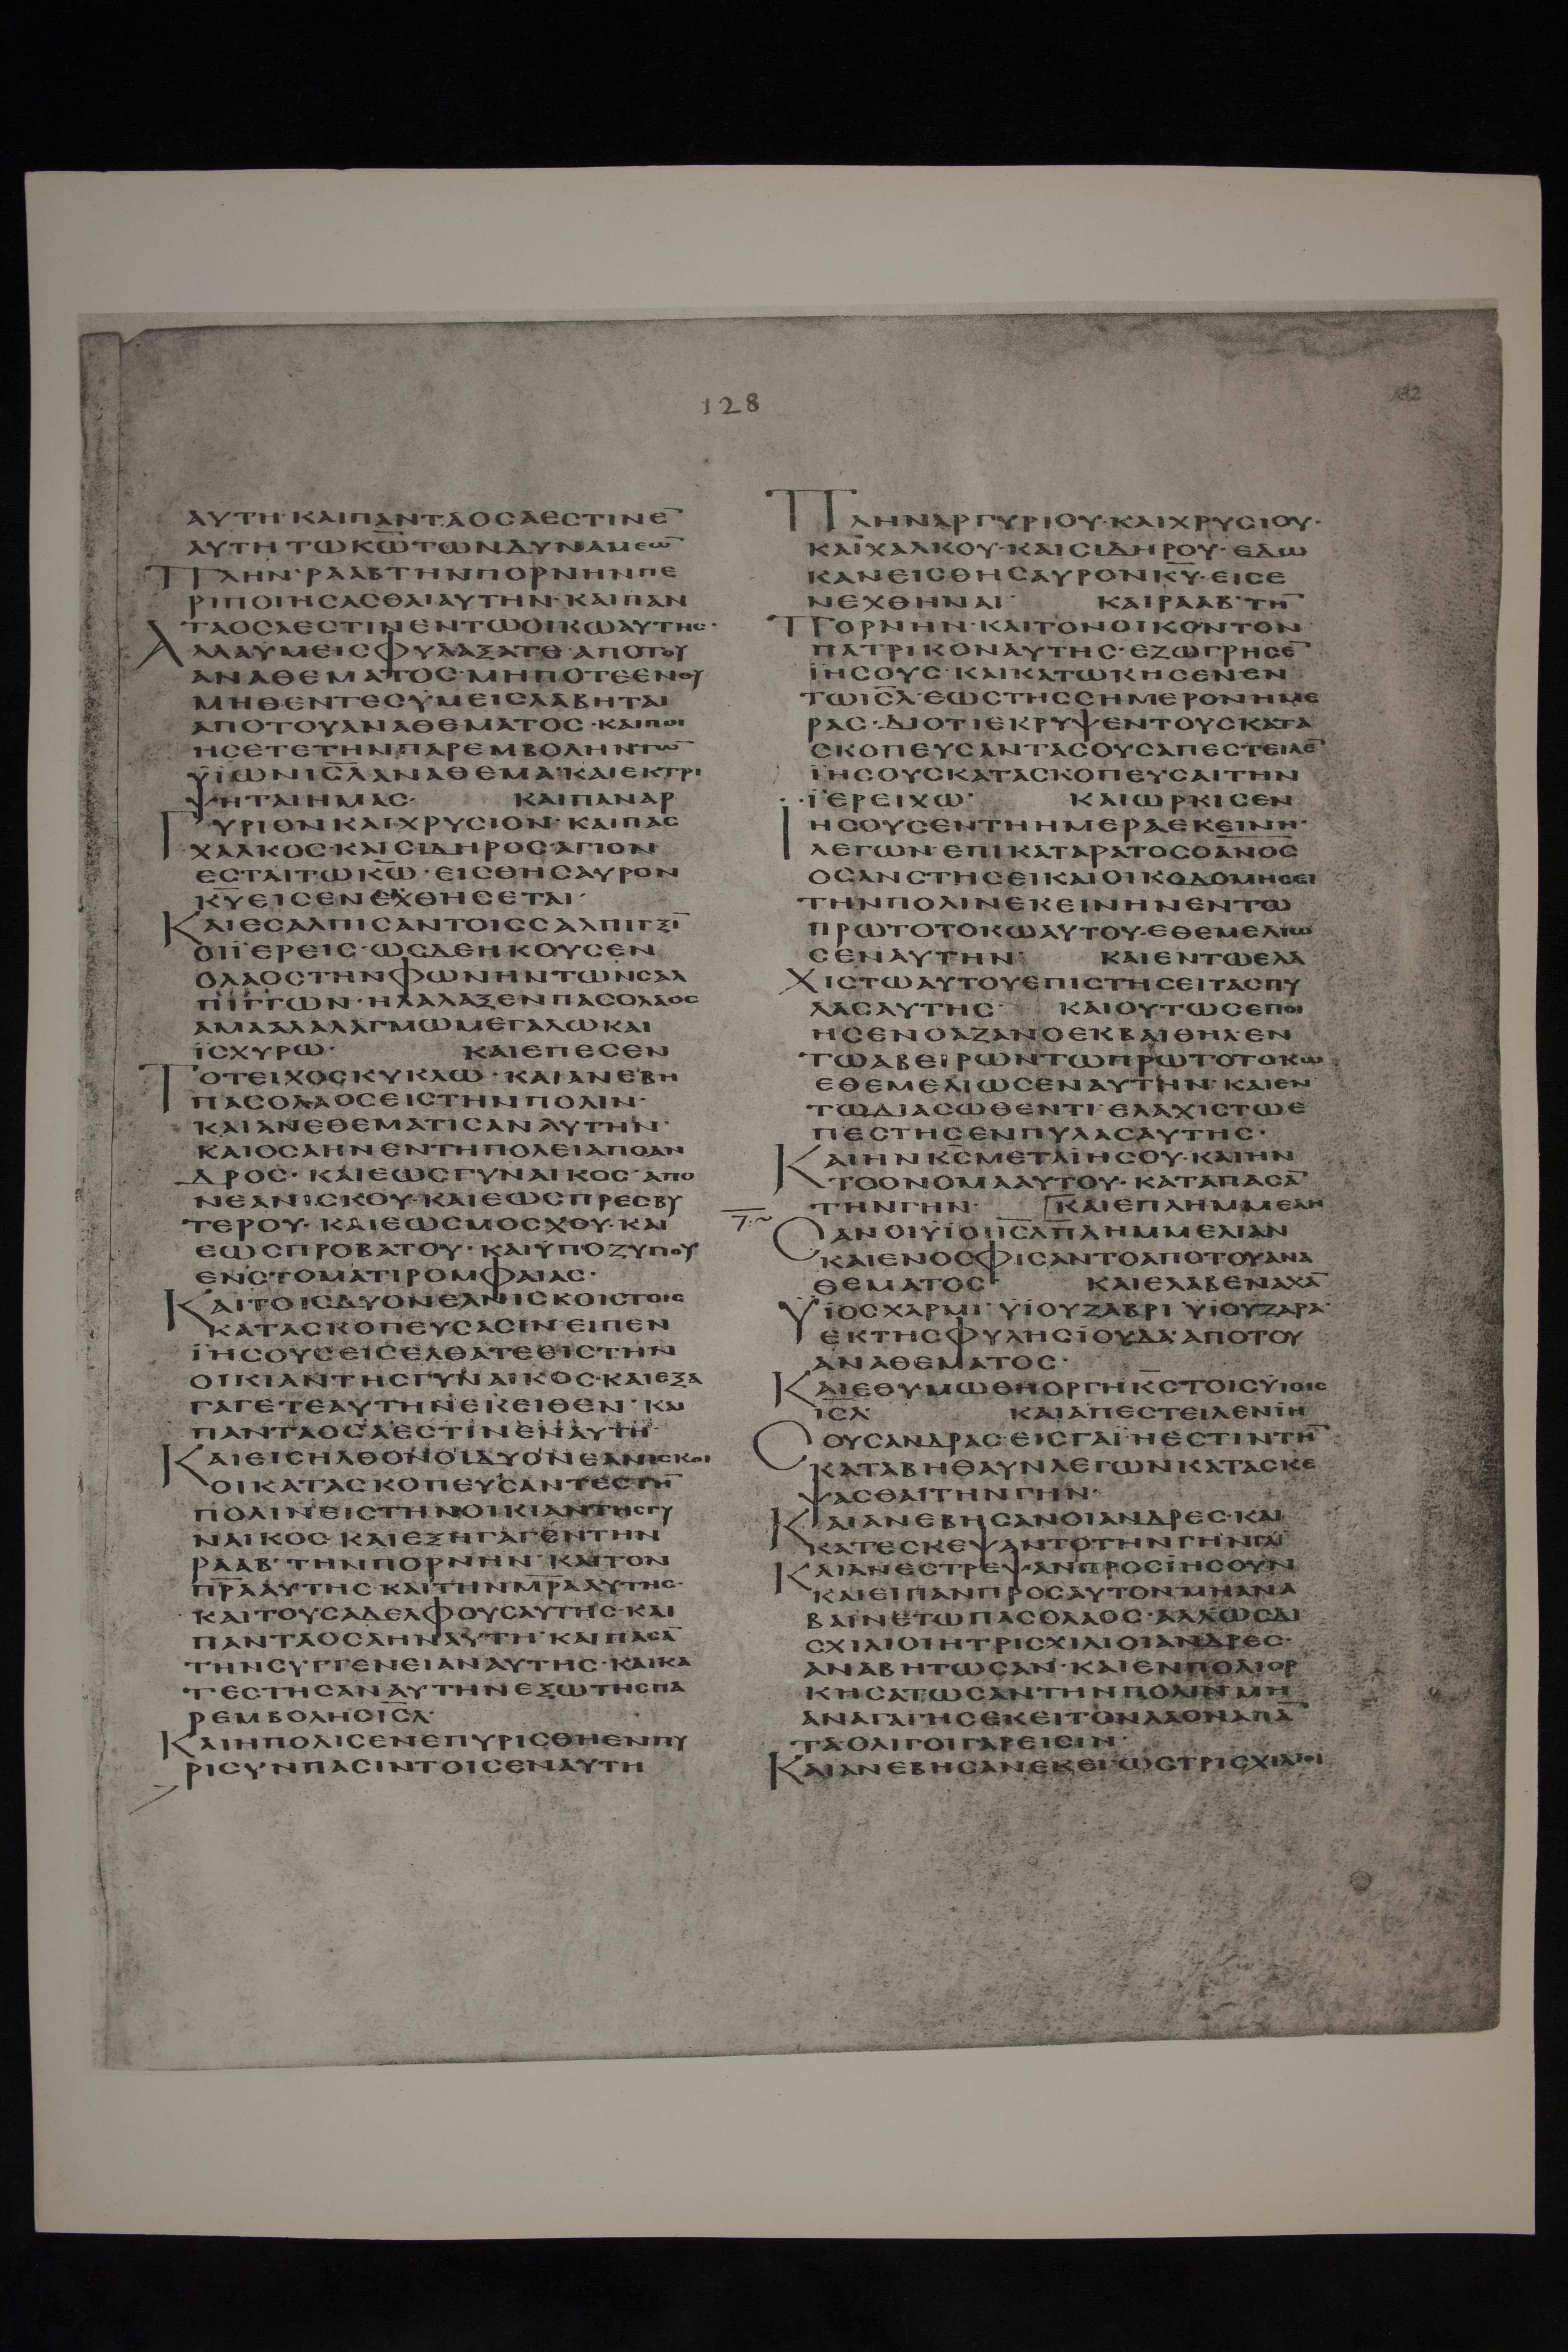 128
132
ΑΥΤΗ·ΚΑΙΠΑΝΤΑΟΣΑΕΣΤΙΝΕ̅
ΑΥΤΗΤΩΚ̅Ω̅ΤΩΝΔΥΝΑΜΕΩ̅
ΠΛΗΝ·ΡΑΑΒΤΗΝΠΟΡΝΗΝΠΕ
ΡΙΠΟΙΗΣΑΣΘΑΙΑΥΤΗΝ·ΚΑΙΠΑΝ
ΤΑΟΣΑΕΣΤΙΝΕΝΤΩΟΙΚΩΑΥΤΗΣ·
ΑΛΛΑΥΜΕΙΣΦΥΛΑΞΑΤΕ·ΑΠΟΤΟΥ
ΑΝΑΘΕΜΑΤΟΣ·ΜΗΠΟΤΕΕΝΟΥ
ΜΗΘΕΝΤΕΣΥΜΕΙΣΛΑΒΗΤΑΙ
ΑΠΟΤΟΥΑΝΑΘΕΜΑΤΟΣ·ΚΑΙΠΟΙ
ΗΣΕΤΕΤΗΝΠΑΡΕΜΒΟΛΗΝΤΩ̅
ΫΙΩΝΙ̅Σ̅Λ̅ΑΝΑΘΕΜΑ·ΚΑΙΕΚΤΡΙ
ΨΗΤΑΙΗΜΑΣ· ΚΑΙΠΑΝΑΡ
ΓΥΡΙΟΝΚΑΙΧΡΥΣΙΟΝ·ΚΑΙΠΑΣ
ΧΑΛΚΟΣ·ΚΑΙΣΙΔΗΡΟΣ·ΑΓΙΟΝ
ΕΣΤΑΙΤΩΚ̅Ω̅·ΕΙΣΘΗΣΑΥΡΟΝ
Κ̅Υ̅ΕΙΣΕΝΕΧΘΗΣΕΤΑΙ·
ΚΑΙΕΣΑΛΠΙΣΑΝΤΟΙΣΣΑΛΠΙΓΞΙ̅
ΟΙΪΕΡΕΙΣ·ΩΣΔΕΗΚΟΥΣΕΝ
ΟΛΑΟΣΤΗΝΦΩΝΗΝΤΩΝΣΑΛ
ΠΙΓΓΩΝ·ΗΛΑΛΑΞΕΝΠΑΣΟΛΑΟΣ
ΑΜΑΑΛΑΛΑΓΜΩΜΕΓΑΛΩΚΑΙ
ΪΣΧΥΡΩ· ΚΑΙΕΠΕΣΕΝ
ΤΟΤΕΙΧΟΣΚΥΚΛΩ·ΚΑΙΑΝΕΒΗ
ΠΑΣΟΛΑΟΣΕΙΣΤΗΝΠΟΛΙΝ·
ΚΑΙΑΝΕΘΕΜΑΤΙΣΑΝΑΥΤΗΝ·
ΚΑΙΟΣΑΗΝΕΝΤΗΠΟΛΕΙΑΠΟΑΝ
ΔΡΟΣ·ΚΑΙΕΩΣΓΥΝΑΙΚΟΣ·ΑΠΟ
ΝΕΑΝΙΣΚΟΥ·ΚΑΙΕΩΣΠΡΕΣΒΥ
ΤΕΡΟΥ·ΚΑΙΕΩΣΜΟΣΧΟΥ·ΚΑΙ
ΕΩΣΠΡΟΒΑΤΟΥ·ΚΑΙΫΠΟΖΥΓΙΟΥ
ΕΝΣΤΟΜΑΤΙΡΟΜΦΑΙΑΣ·
ΚΑΙΤΟΙΣΔΥΟΝΕΑΝΙΣΚΟΙΣΤΟΙΣ
ΚΑΤΑΣΚΟΠΕΥΣΑΣΙΝ·ΕΙΠΕΝ
ΪΗΣΟΥΣΕΙΣΕΛΘΑΤΕΕΙΣΤΗΝ
ΟΙΚΙΑΝΤΗΣΓΥΝΑΙΚΟΣ·ΚΑΙΕΞΑ
ΓΑΓΕΤΕΑΥΤΗΝΕΚΕΙΘΕΝ·ΚΑΙ
ΠΑΝΤΑΟΣΑΕΣΤΙΝΕΝΑΥΤΗ·
ΚΑΙΕΙΣΗΛΘΟΝΟΙΔΥΟΝΕΑΝΙΣΚΟΙ
ΟΙΚΑΤΑΣΚΟΠΕΥΣΑΝΤΕΣΤΗ̅
ΠΟΛΙΝΕΙΣΤΗΝΟΙΚΙΑΝΤΗΣΓΥ
ΝΑΙΚΟΣ·ΚΑΙΕΞΗΓΑΓΟΝΤΗΝ
ΡΑΑΒ·ΤΗΝΠΟΡΝΗΝ·ΚΑΙΤΟΝ
Π̅Ρ̅Α̅ΑΥΤΗΣ·ΚΑΙΤΗΝΜ̅Ρ̅Α̅ΑΥΤΗΣ·
ΚΑΙΤΟΥΣΑΔΕΛΦΟΥΣΑΥΤΗΣ·ΚΑΙ
ΠΑΝΤΑΟΣΑΗΝΑΥΤΗ·ΚΑΙΠΑΣΑ̅
ΤΗΝΣΥΓΓΕΝΕΙΑΝΑΥΤΗΣ·ΚΑΙΚΑ
ΤΕΣΤΗΣΑΝΑΥΤΗΝΕΞΩΤΗΣΠΑ
ΡΕΜΒΟΛΗΣΙ̅Σ̅Λ̅·
ΚΑΙΗΠΟΛΙΣΕΝΕΠΥΡΙΣΘΗΕΝΠΥ
ΡΙΣΥΝΠΑΣΙΝΤΟΙΣΕΝΑΥΤΗ
ΠΛΗΝΑΡΓΥΡΙΟΥ·ΚΑΙΧΡΥΣΙΟΥ·
ΚΑΙΧΑΛΚΟΥ·ΚΑΙΣΙΔΗΡΟΥ·ΕΔΩ
ΚΑΝΕΙΣΘΗΣΑΥΡΟΝΚ̅Υ̅·ΕΙΣΕ
ΝΕΧΘΗΝΑΙ· ΚΑΙΡΑΑΒ·ΤΗ̅
ΠΟΡΝΗΝ·ΚΑΙΤΟΝΟΙΚΟΝΤΟΝ
ΠΑΤΡΙΚΟΝΑΥΤΗΣ·ΕΖΩΓΡΗΣΕ̅
ΪΗΣΟΥΣ·ΚΑΙΚΑΤΩΚΗΣΕΝΕΝ
ΤΩΙ̅Σ̅Λ̅·ΕΩΣΤΗΣΣΗΜΕΡΟΝΗΜΕ
ΡΑΣ·ΔΙΟΤΙΕΚΡΥΨΕΝΤΟΥΣΚΑΤΑ
ΣΚΟΠΕΥΣΑΝΤΑΣΟΥΣΑΠΕΣΤΕΙΛΕ̅
ΪΗΣΟΥΣΚΑΤΑΣΚΟΠΕΥΣΑΙΤΗΝ
ΪΕΡΕΙΧΩ· ΚΑΙΩΡΚΙΣΕΝ
ΙΗΣΟΥΣΕΝΤΗΗΜΕΡΑΕΚΕΙΝΗ·
ΛΕΓΩΝ·ΕΠΙΚΑΤΑΡΑΤΟΣΟΑ̅Ν̅Ο̅Σ̅
ΟΣΑΝΣΤΗΣΕΙΚΑΙΟΙΚΟΔΟΜΗΣΕΙ
ΤΗΝΠΟΛΙΝΕΚΕΙΝΗΝΕΝΤΩ
ΠΡΩΤΟΤΟΚΩΑΥΤΟΥ·ΕΘΕΜΕΛΙΩ
ΣΕΝΑΥΤΗΝ· ΚΑΙΕΝΤΩΕΛΑ
ΧΙΣΤΩΑΥΤΟΥΕΠΙΣΤΗΣΕΙΤΑΣΠΥ
ΛΑΣΑΥΤΗΣ· ΚΑΙΟΥΤΩΣΕΠΟΙ
ΗΣΕΝΟΑΖΑΝΟΕΚΒΑΙΘΗΛ·ΕΝ
ΤΩΑΒΕΙΡΩΝΤΩΠΡΩΤΟΤΟΚΩ
ΕΘΕΜΕΛΙΩΣΕΝΑΥΤΗΝ·ΚΑΙΕΝ
ΤΩΔΙΑΣΩΘΕΝΤΙ·ΕΛΑΧΙΣΤΩΕ
ΠΕΣΤΗΣΕΝΠΥΛΑΣΑΥΤΗΣ·
ΚΑΙΗΝΚ̅Σ̅ΜΕΤΑΪΗΣΟΥ·ΚΑΙΗΝ
ΤΟΟΝΟΜΑΑΥΤΟΥ·ΚΑΤΑΠΑΣΑ̅
ΤΗΝΓΗΝ· ΚΑΙΕΠΛΗΜΜΕΛΗ
ΣΑΝΟΙΫΙΟΙΙ̅Σ̅Λ̅ΠΛΗΜΜΕΛΙΑΝ
ΚΑΙΕΝΟΣΦΙΣΑΝΤΟΑΠΟΤΟΥΑΝΑ
ΘΕΜΑΤΟΣ· ΚΑΙΕΛΑΒΕΝΑΧΑ̅
ΫΙΟΣΧΑΡΜΙ·ΫΙΟΥΖΑΒΡΙ·ΫΙΟΥΖΑΡΑ·
ΕΚΤΗΣΦΥΛΗΣΪΟΥΔΑ·ΑΠΟΤΟΥ
ΑΝΑΘΕΜΑΤΟΣ·
ΚΑΙΕΘΥΜΩΘΗΟΡΓΗΚ̅Σ̅ΤΟΙΣΥΙΟΙΣ
Ι̅Σ̅Λ̅· ΚΑΙΑΠΕΣΤΕΙΛΕΝΪΗ
ΣΟΥΣΑΝΔΡΑΣ·ΕΙΣΓΑΙ·ΗΕΣΤΙΝΤΗ̅
ΚΑΤΑΒΗΘΑΥΝΛΕΓΩΝΚΑΤΑΣΚΕ
ΨΑΣΘΑΙΤΗΝΓΗΝ·
ΚΑΙΑΝΕΒΗΣΑΝΟΙΑΝΔΡΕΣ·ΚΑΙ
ΚΑΤΕΣΚΕΨΑΝΤΟΤΗΝΓΗΝΓΑΙ
ΚΑΙΑΝΕΣΤΡΕΨΑΝΠΡΟΣΪΗΣΟΥΝ
ΚΑΙΕΙΠΑΝΠΡΟΣΑΥΤΟΝΜΗΑΝΑ
ΒΑΙΝΕΤΩΠΑΣΟΛΑΟΣ·ΑΛΛΩΣΔΙ
ΣΧΙΛΙΟΙΗΤΡΙΣΧΙΛΙΟΙΑΝΔΡΕΣ·
ΑΝΑΒΗΤΩΣΑΝ·ΚΑΙΕΝΠΟΛΙΟΡ
ΚΗΣΑΤΩΣΑΝΤΗΝΠΟΛΙΝΜΗ
ΑΝΑΓΑΓΗΣΕΚΕΙΤΟΝΛΑΟΝΑΠΑ̅
ΤΑΟΛΙΓΟΙΓΑΡΕΙΣΙΝ·
ΚΑΙΑΝΕΒΗΣΑΝΕΚΕΙ·ΩΣΤΡΙΣΧΙΛΙΟΙ